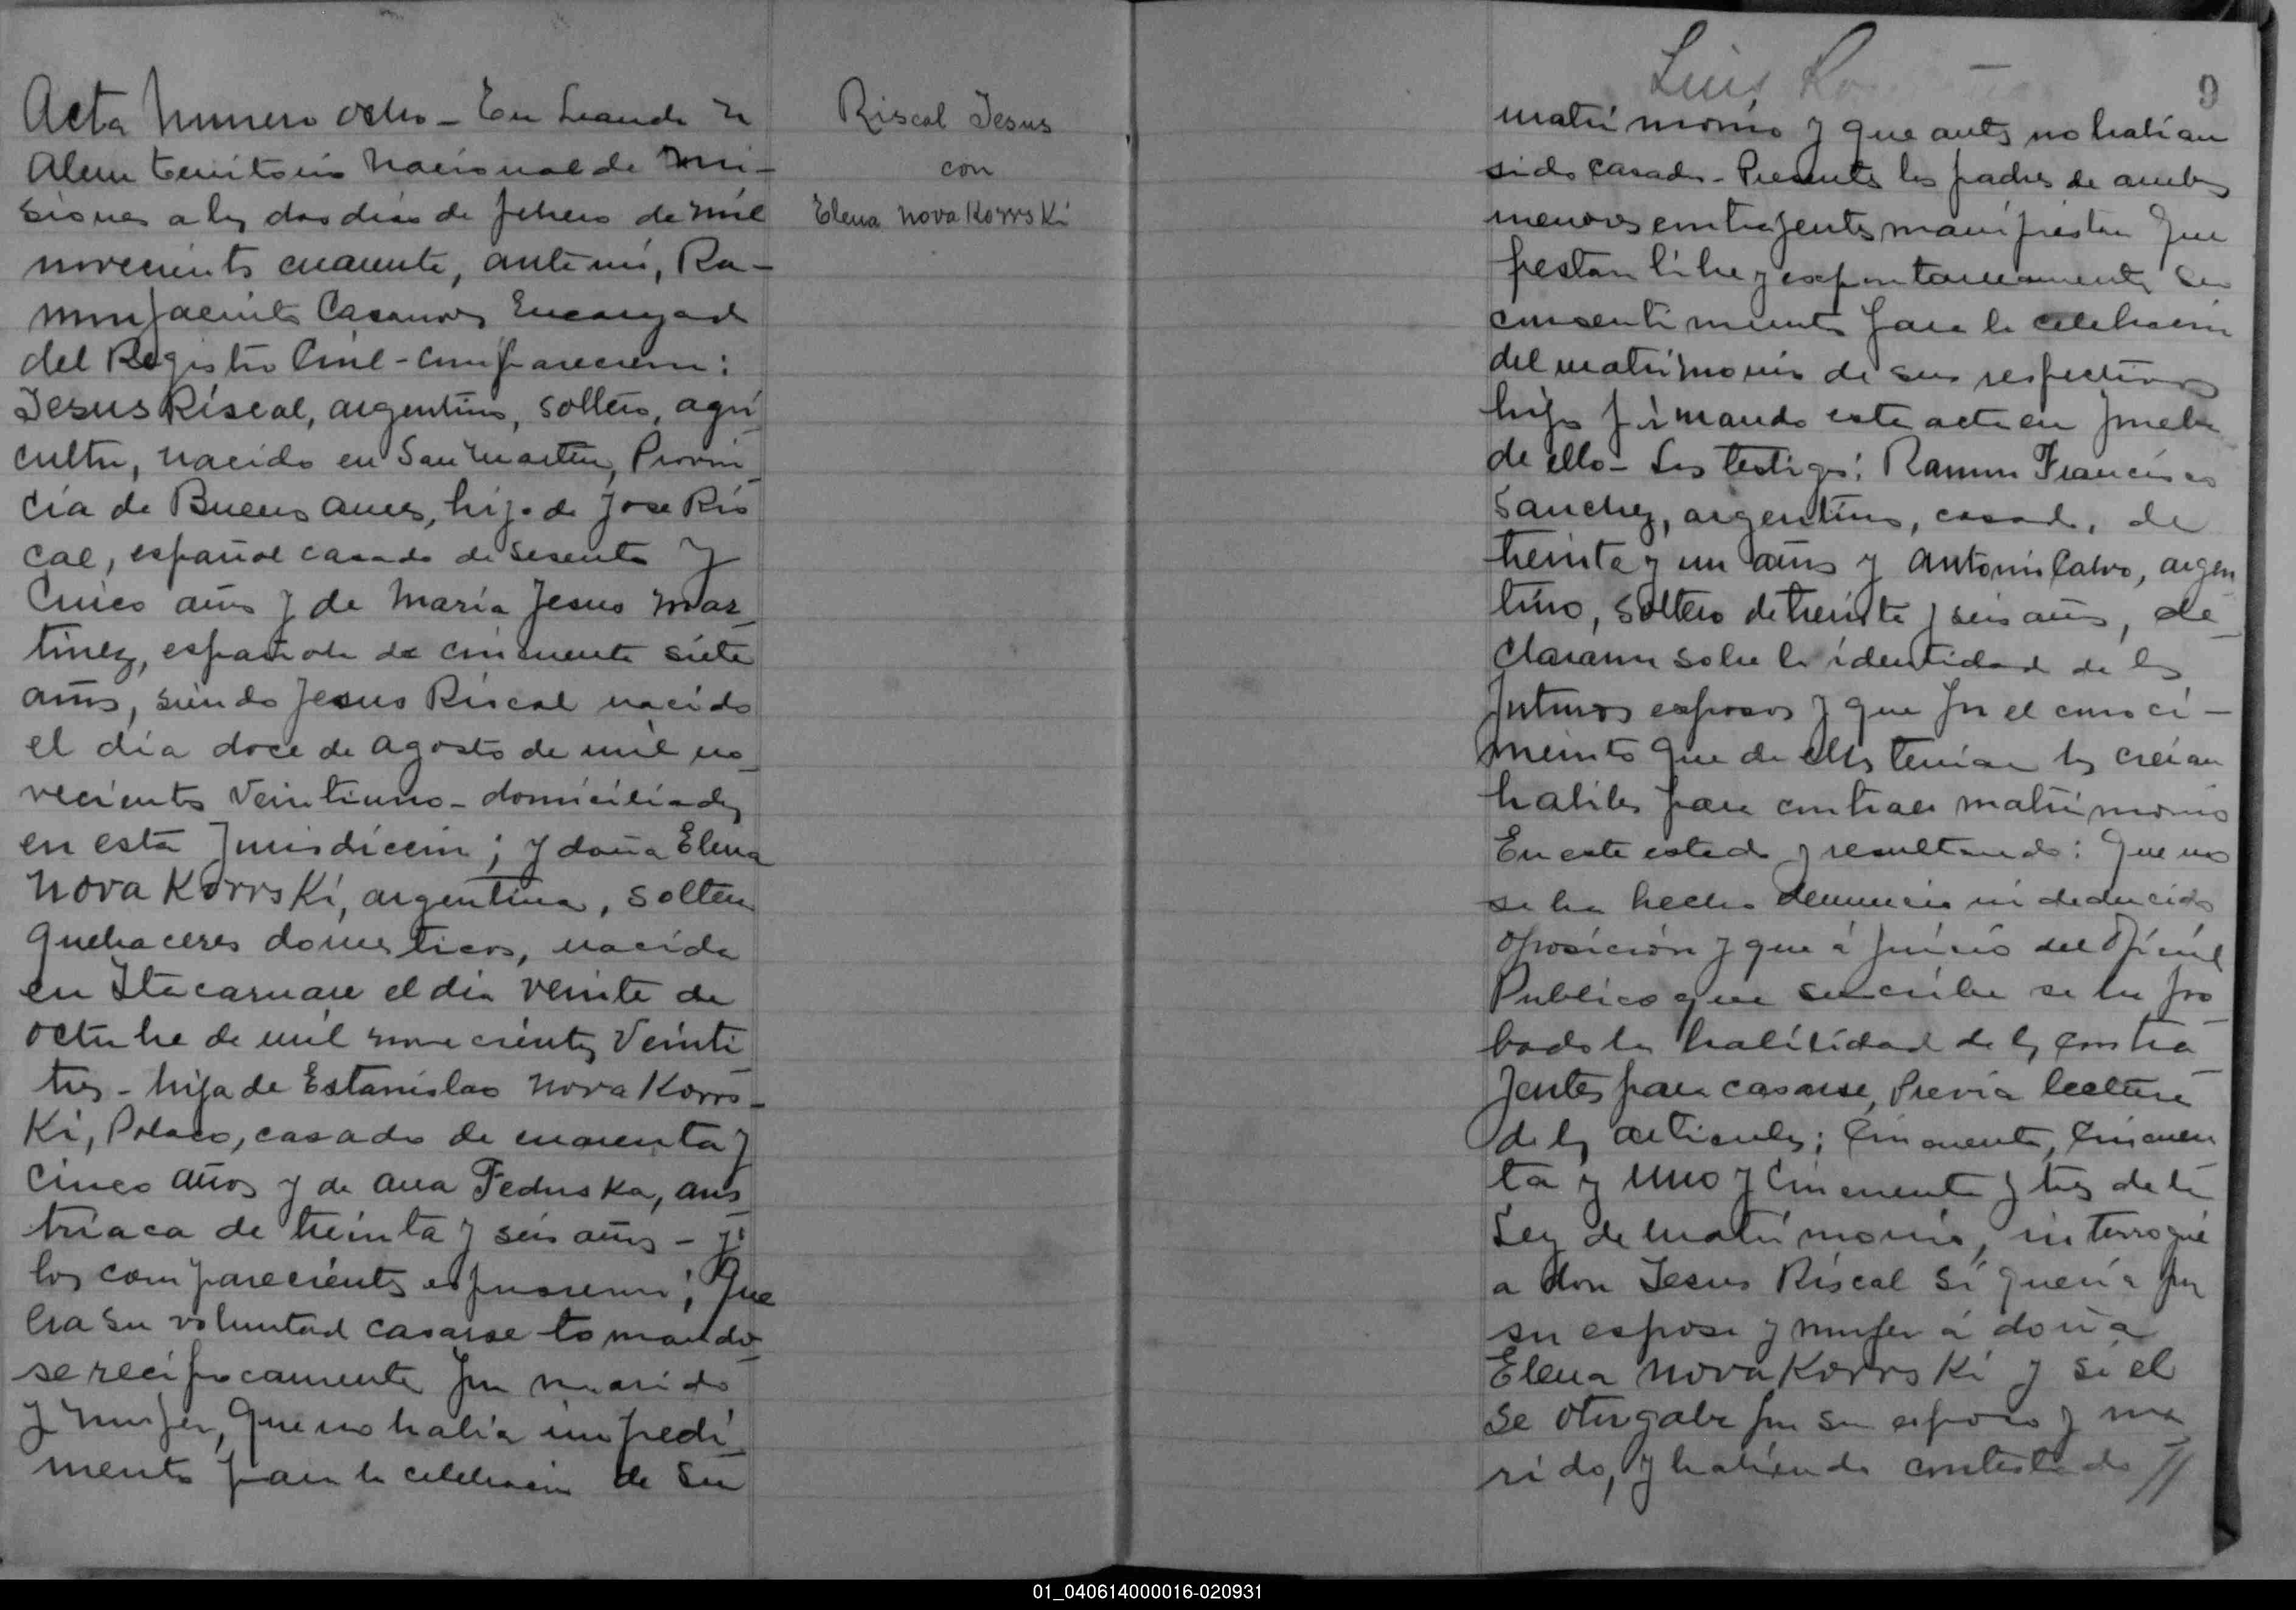 Acta Numero ocho - En Leandro N
Alem territorio Nacional de Mi-
siones a los dos dias de febrero de mil
novecientos cuarenta, ante mi, Ra-
mon Jacinto Casanova Encargado
del Registro Civil - comparecieron:
Jesus Riscal, argentino, soltero, agri
cultor, nacido en San Martin, Provin
cia de Buenos Aires, hijo de Jose Ris
cal, español casado de sesenta y
Cinco años y de Maria Jesus Mar
tinez, española de cincuenta siete
años, siendo Jesus Riscal nacido
el día doce de agosto de mil no
vecientos veintiuno - domiciliados
en esta Jurisdiccion; y doña Elena
Novakorrski, argentina, soltera
quehaceres domesticos, nacida
en Itacaruare el dia veinte de
octubre de mil novecientos veinti
tres - hija de Estanislao Novakorrs-
ki, Polaco, casado de cuarenta y
cinco años y de Ana Feduska, aus
triaca de treinta y seis años - y
los comparecientes expusieron; Que
era su voluntad casarse tomando
se reciprocamente por marido
y mujer, que no habia impedi
mento para la celebracion de su
Riscal Jesus
con
Elena Novakorrski
Luis
9
matrimonio y que antes no habian
sido casados - Presentes los padres de ambos
menores contrajentes manifiestan que
prestan libre y expontaneamente su
consentimiento para la celebracion
del matrimonio de sus respectivos
hijos firmando este acta en prueba
de ello - Los testigos: Ramon Francisco
Sanchez, argentino, casado, de
treinta y un años y Antonio Calvo, argen
tino, soltero de treinta y seis años, de
clararon sobre la identidad de los
futuros esposos y que por el conoci-
miento que de ellos tenian los creian
habiles para contraer matrimonio
En este estado y resultando: Que no
se ha hecho denuncia ni deducido
oposición y que á juicio del Oficial
Publico que suscribe se ha pro
bado la habilidad de los contra
jentes para casarse, Previa lectura
de los articulos; Cincuenta, Cincuen
ta y uno y Cincuenta y tres de la
Ley de matrimonio, interrogué
a don Jesus Riscal si queria por
su esposa y mujer á doña
Elena Novakorrski y si el
se otorgaba por su esposo y ma
rido, y habiendo contestado //
01_040614000016-020931